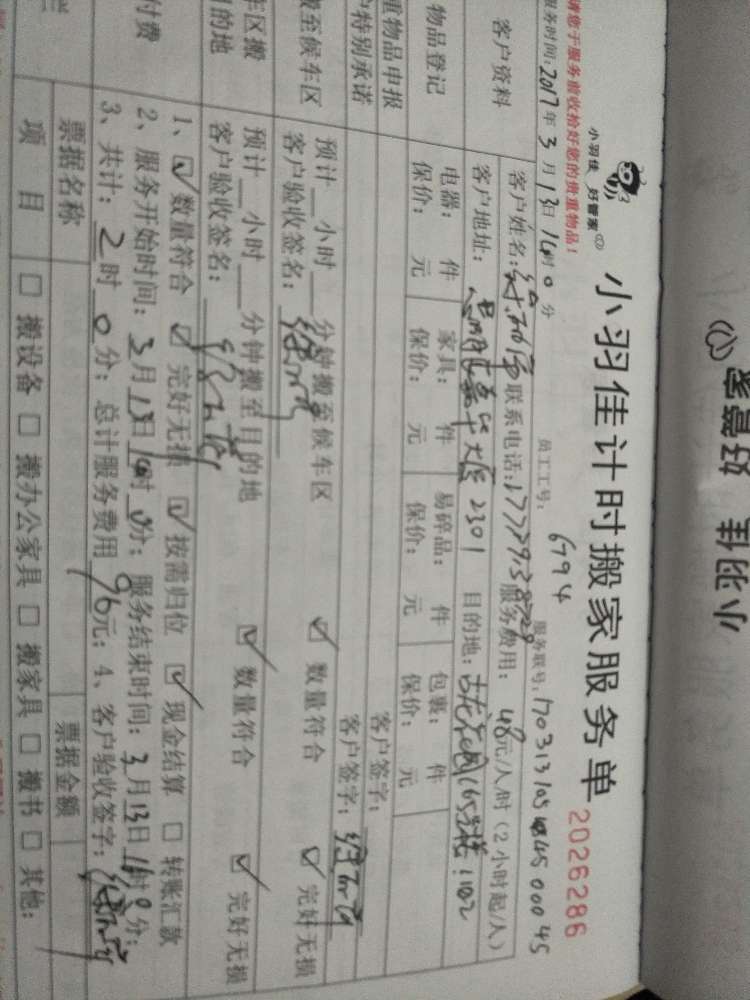 请您于服务前收拾好您的贵重物品！
小羽佳 好管家
小羽佳计时搬家服务单
2026286
服务时间：2017年3月13日16时0分
员工工号：6794
服务联号：
客户资料
客户姓名：
联系电话：
服务费用：48元/人/时（2小时起/人）
客户地址：
2301
目的地：
1102
物品登记
电器： 件 家具： 件 易碎品： 件 包裹： 件
保价： 元 保价： 元 保价： 元 保价： 元
重物品申报
客户签字：
户特别承诺
客户签字：
搬至候车区
预计 小时 分钟搬至候车区
☑ 数量符合 ☑ 完好无损
客户验收签名：
车区搬
目的地
预计 小时 分钟搬至目的地
☑ 数量符合 ☑ 完好无损
客户验收签名：
付费
1、☑ 数量符合 ☑ 完好无损 ☑ 按需归位 ☑ 现金结算 □ 转账汇款
2、服务开始时间：3月13日 时 分；服务结束时间：3月13日 时0分；
3、共计：2时0分；总计服务费用96元；4、客户验收签字：
票据名称
票据金额
项 目
□ 搬设备 □ 搬办公家具 □ 搬家具 □ 搬书 □ 其他：
好管家
小羽佳